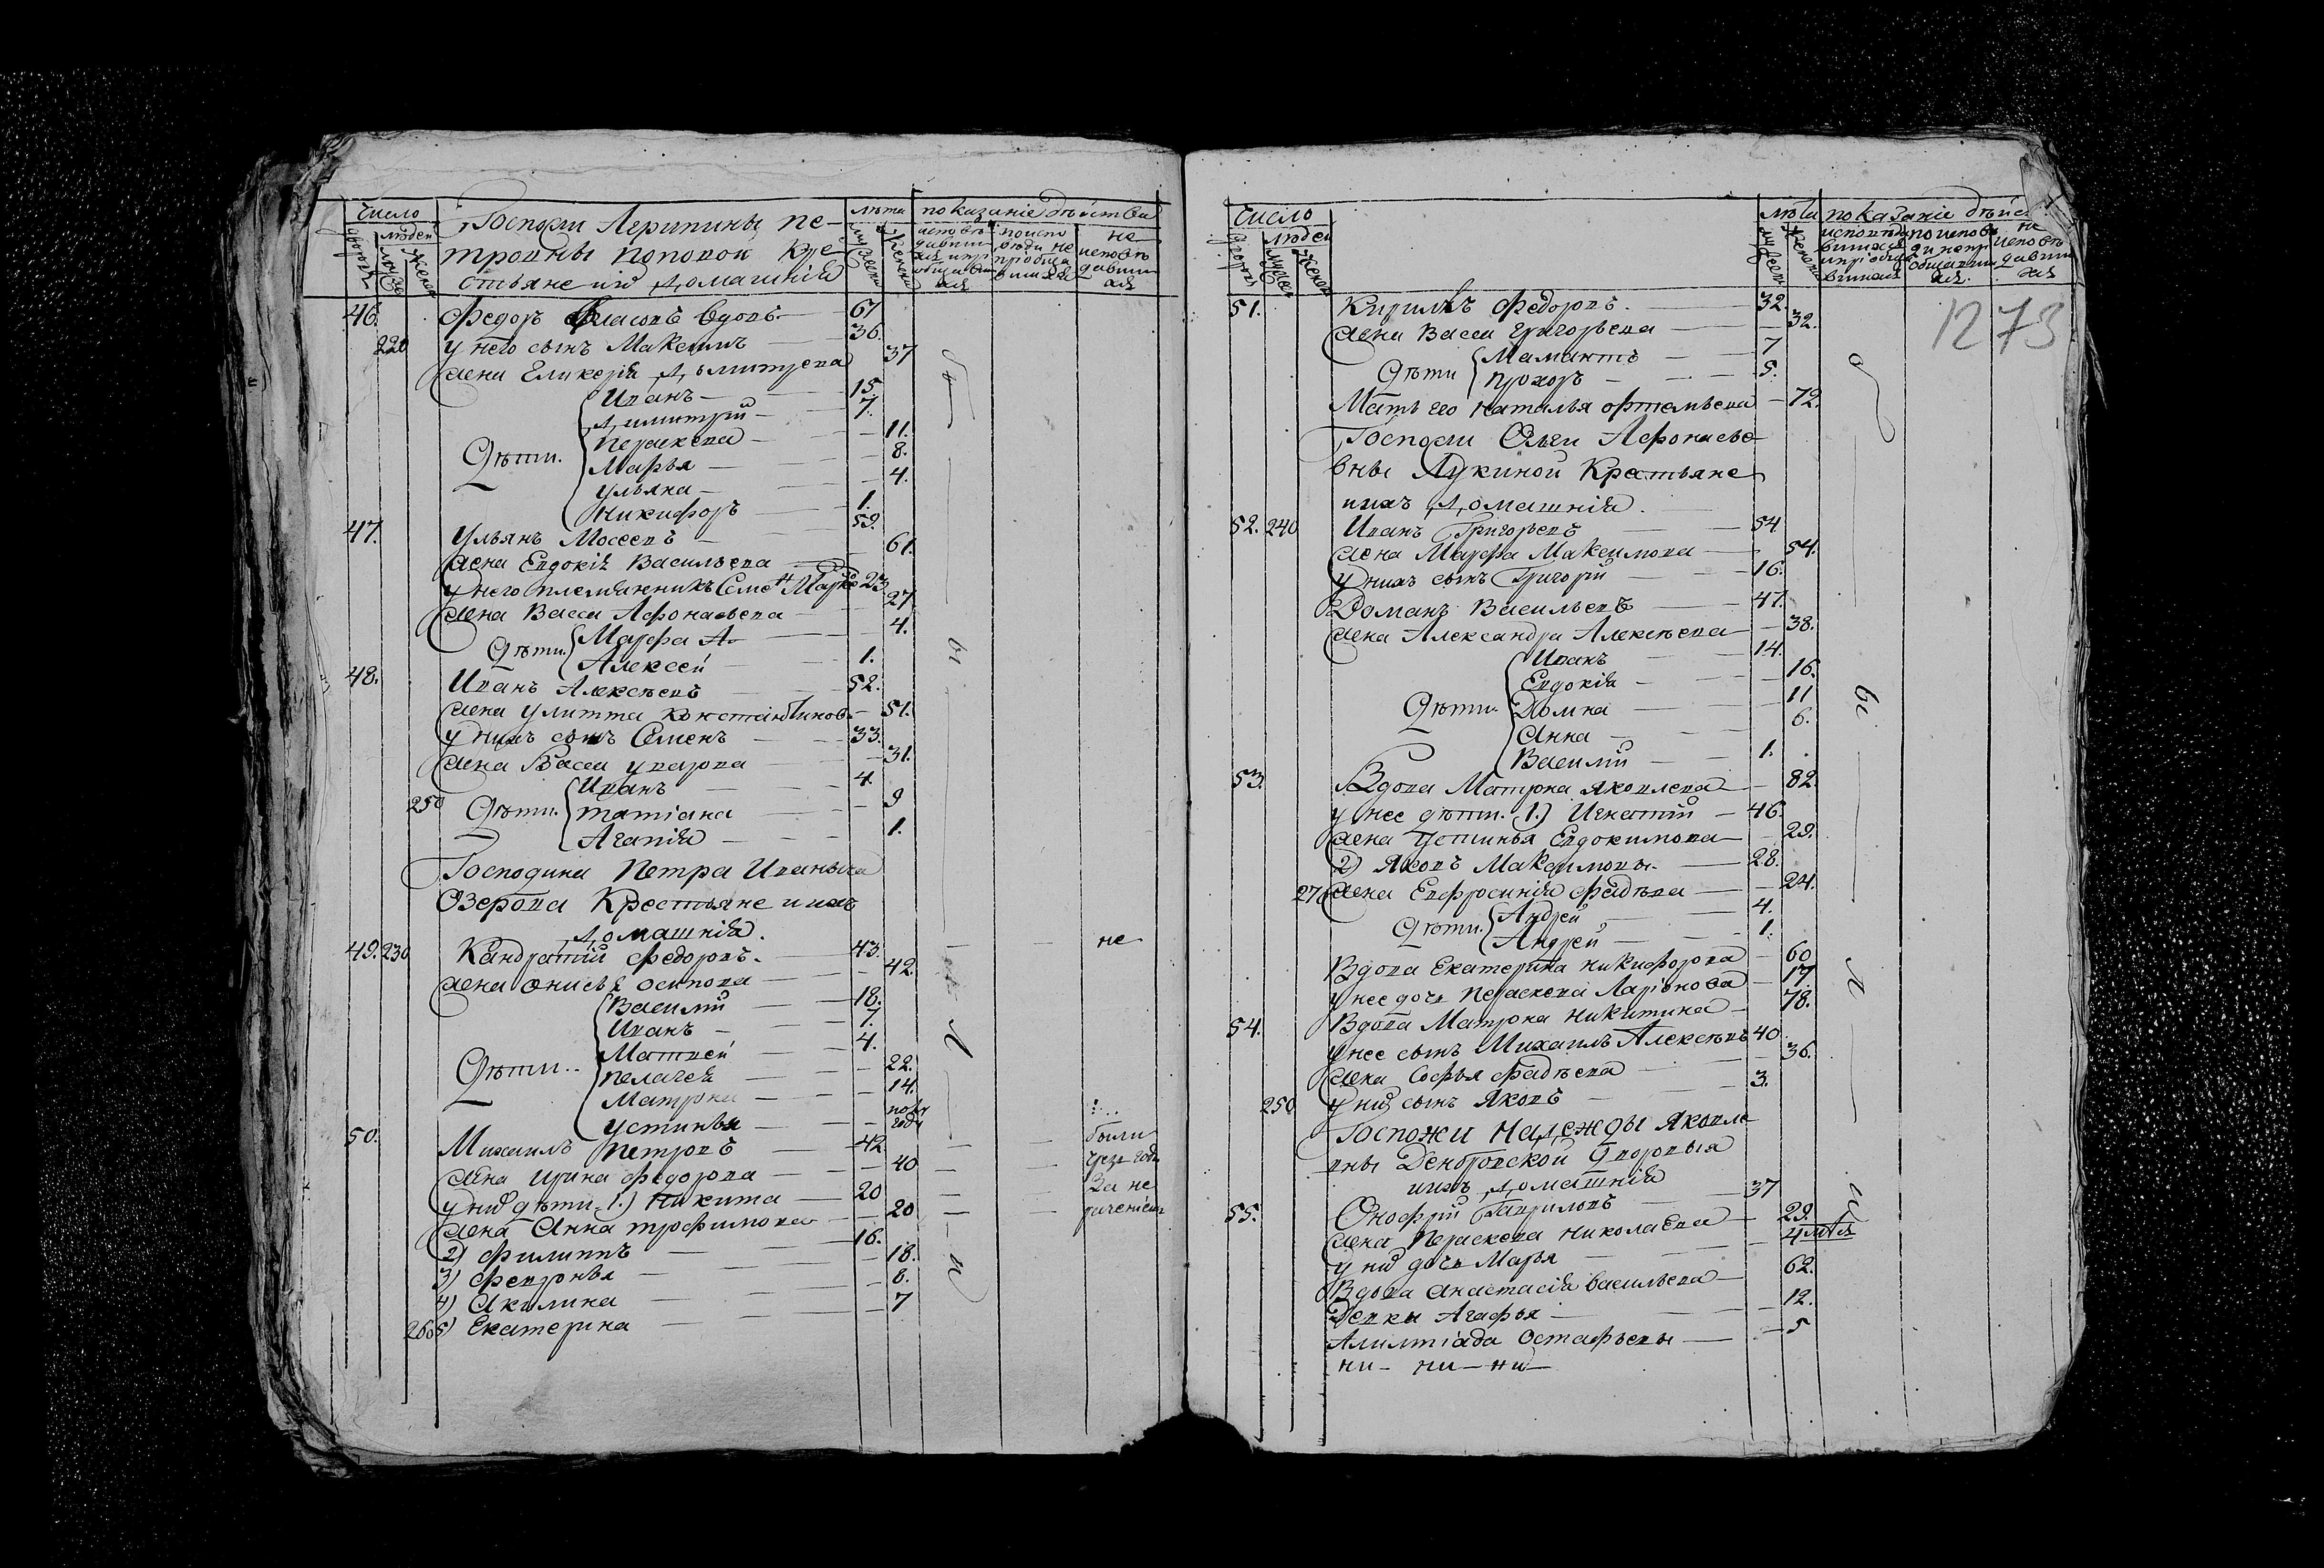 Число
людей
Госпожи Агрипины Пе-
тровны Поповой Кре-
стьяне и их домашнія
лѣта
показаніе дѣйства
не
46.
Федоръ Власовъ вдовъ — 67
220 у него сынъ Максимъ — 36.
жена Гликерія Дмитрева 37
Дѣти.
Иванъ — 15.
Димитрій — 7.
Пераскева — 11.
Марья — 8.
Ульяна — 4.
Никифоръ — 1.
47.
Ульянъ Мосеевъ — 59.
жена Евдокія Васильева — 61.
у него племянникъ Семенъ 23
жена Васса Афонасьева — 27
Дѣти.
Марфа — 4.
Алексей — 1.
48.
Иванъ Алексѣевъ — 52.
жена Улитта Константинов. — 51.
у нихъ сынъ Семенъ — 33.
жена Васса Уварова — 31.
250 Дѣти.
Иванъ — 4.
Татіана — 9
Агапія — 1.
Господина Петра Иваныча
Озерова Крестьяне и ихъ
домашнія.
49. 230
Кандратій Федоровъ. — 43.
не
жена Онисья Осипова — 42.
Дѣти..
Василій — 18.
Иванъ — 7.
Матвей — 4.
Пелагея — 22.
Матрона — 14.
Устинья — полу году
50.
Михаилъ Петровъ — 42
были
жена Ирина Федорова — 40
у нихъ дѣти. 1.) Никита — 20
За не
жена Анна Трофимова — 20
2) Филиппъ — 16.
3) Февронья — 18.
4) Акилина — 8.
260 5) Екатерина — 7
Число
людей
лѣта
показаніе дѣйс
1273
51.
Кирилъ Федоровъ. — 32.
жена Васса Григорьева — 32.
Дѣти
Мамантъ — 7
Прохоръ — 5.
Мать его Наталья Офтемьева — 72.
Госпожи Ольги Афонасье-
вны Лукиной Крестьяне
и ихъ домашнія.
52. 240
Иванъ Григорьевъ — 54
жена Марфа Максимова — 54.
у нихъ сынъ Григорій — 16.
Романъ Васильевъ — 47.
жена Александра Алексѣева — 38.
Дѣти.
Иванъ — 14.
Евдокія — 16.
Домна — 11
Анна — 6.
Василій — 1.
53.
Вдова Матрона Яковлева — 82.
у нее дѣти. 1.) Игнатій — 46.
жена Устинья Евдокимова — 29.
2) Яковъ Максимовы. — 28.
270 жена Евфросинія Фадѣева — 24.
Дѣти.
Андрей — 4.
Андрей — 1.
Вдова Екатерина Никифорова — 60
у нее дочь Пераскева Ларіонова — 17.
54.
Вдова Матрона Никитина — 78.
у нее сынъ Михаилъ Алексѣевъ 40
жена Софья Фадѣева — 36.
250 у них сынъ Яковъ — 3.
Госпожи Надежды Яковле-
вны Дворовыя
и ихъ домашнія
55.
Онофрій Гавриловъ — 37
жена Пераскева Николаева — 29.
у них дочь Марья — 4
Вдова Анастасія Васильева — 62.
Девки Агафья — 12.
Алимпіада Остафьевы — 5
ни- ни- ни-